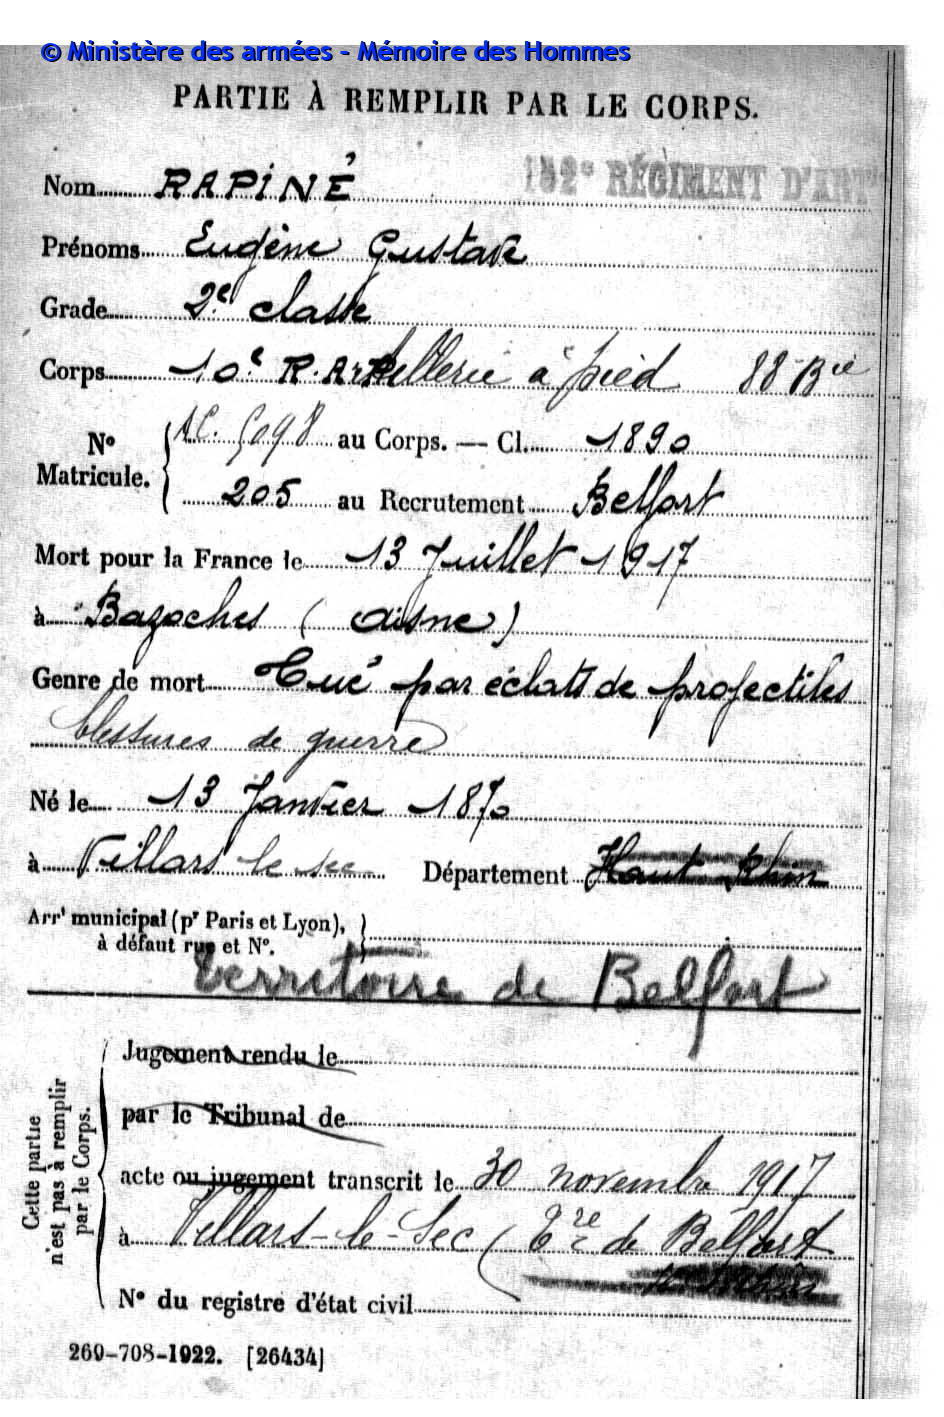 © Ministère des armées - Mémoire des Hommes
PARTIE À REMPLIR PAR LE CORPS.
152e RÉGIMENT D'ART
Nom RAPINÉ
Prénoms Eugène Gustave
Grade 2e classe
Corps 10e R. Artillerie à pied 88 Bie
No Matricule. { A.C. 5098 au Corps. — Cl. 1890
205 au Recrutement Belfort
Mort pour la France le 13 Juillet 1917
à Bazoches (Aisne)
Genre de mort Tué par éclats de projectiles
blessures de guerre
Né le 13 Janvier 1870
à Villars le sec Département Haut Rhin
Arrt municipal (pr Paris et Lyon),
à défaut rue et No.
Territoire de Belfort
Cette partie n'est pas à remplir par le Corps.
Jugement rendu le
par le Tribunal de
acte ou jugement transcrit le 30 novembre 1917
à Villars-le-Sec (Tre de Belfort
No du registre d'état civil
269-708-1922. [26434]